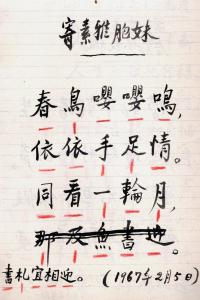 寄素雅胞妹
春鳥嚶嚶鳴，
依依手足情。
同看一輪月，
那及魚書迎。
書札宜相迎。（1967年2月5日）